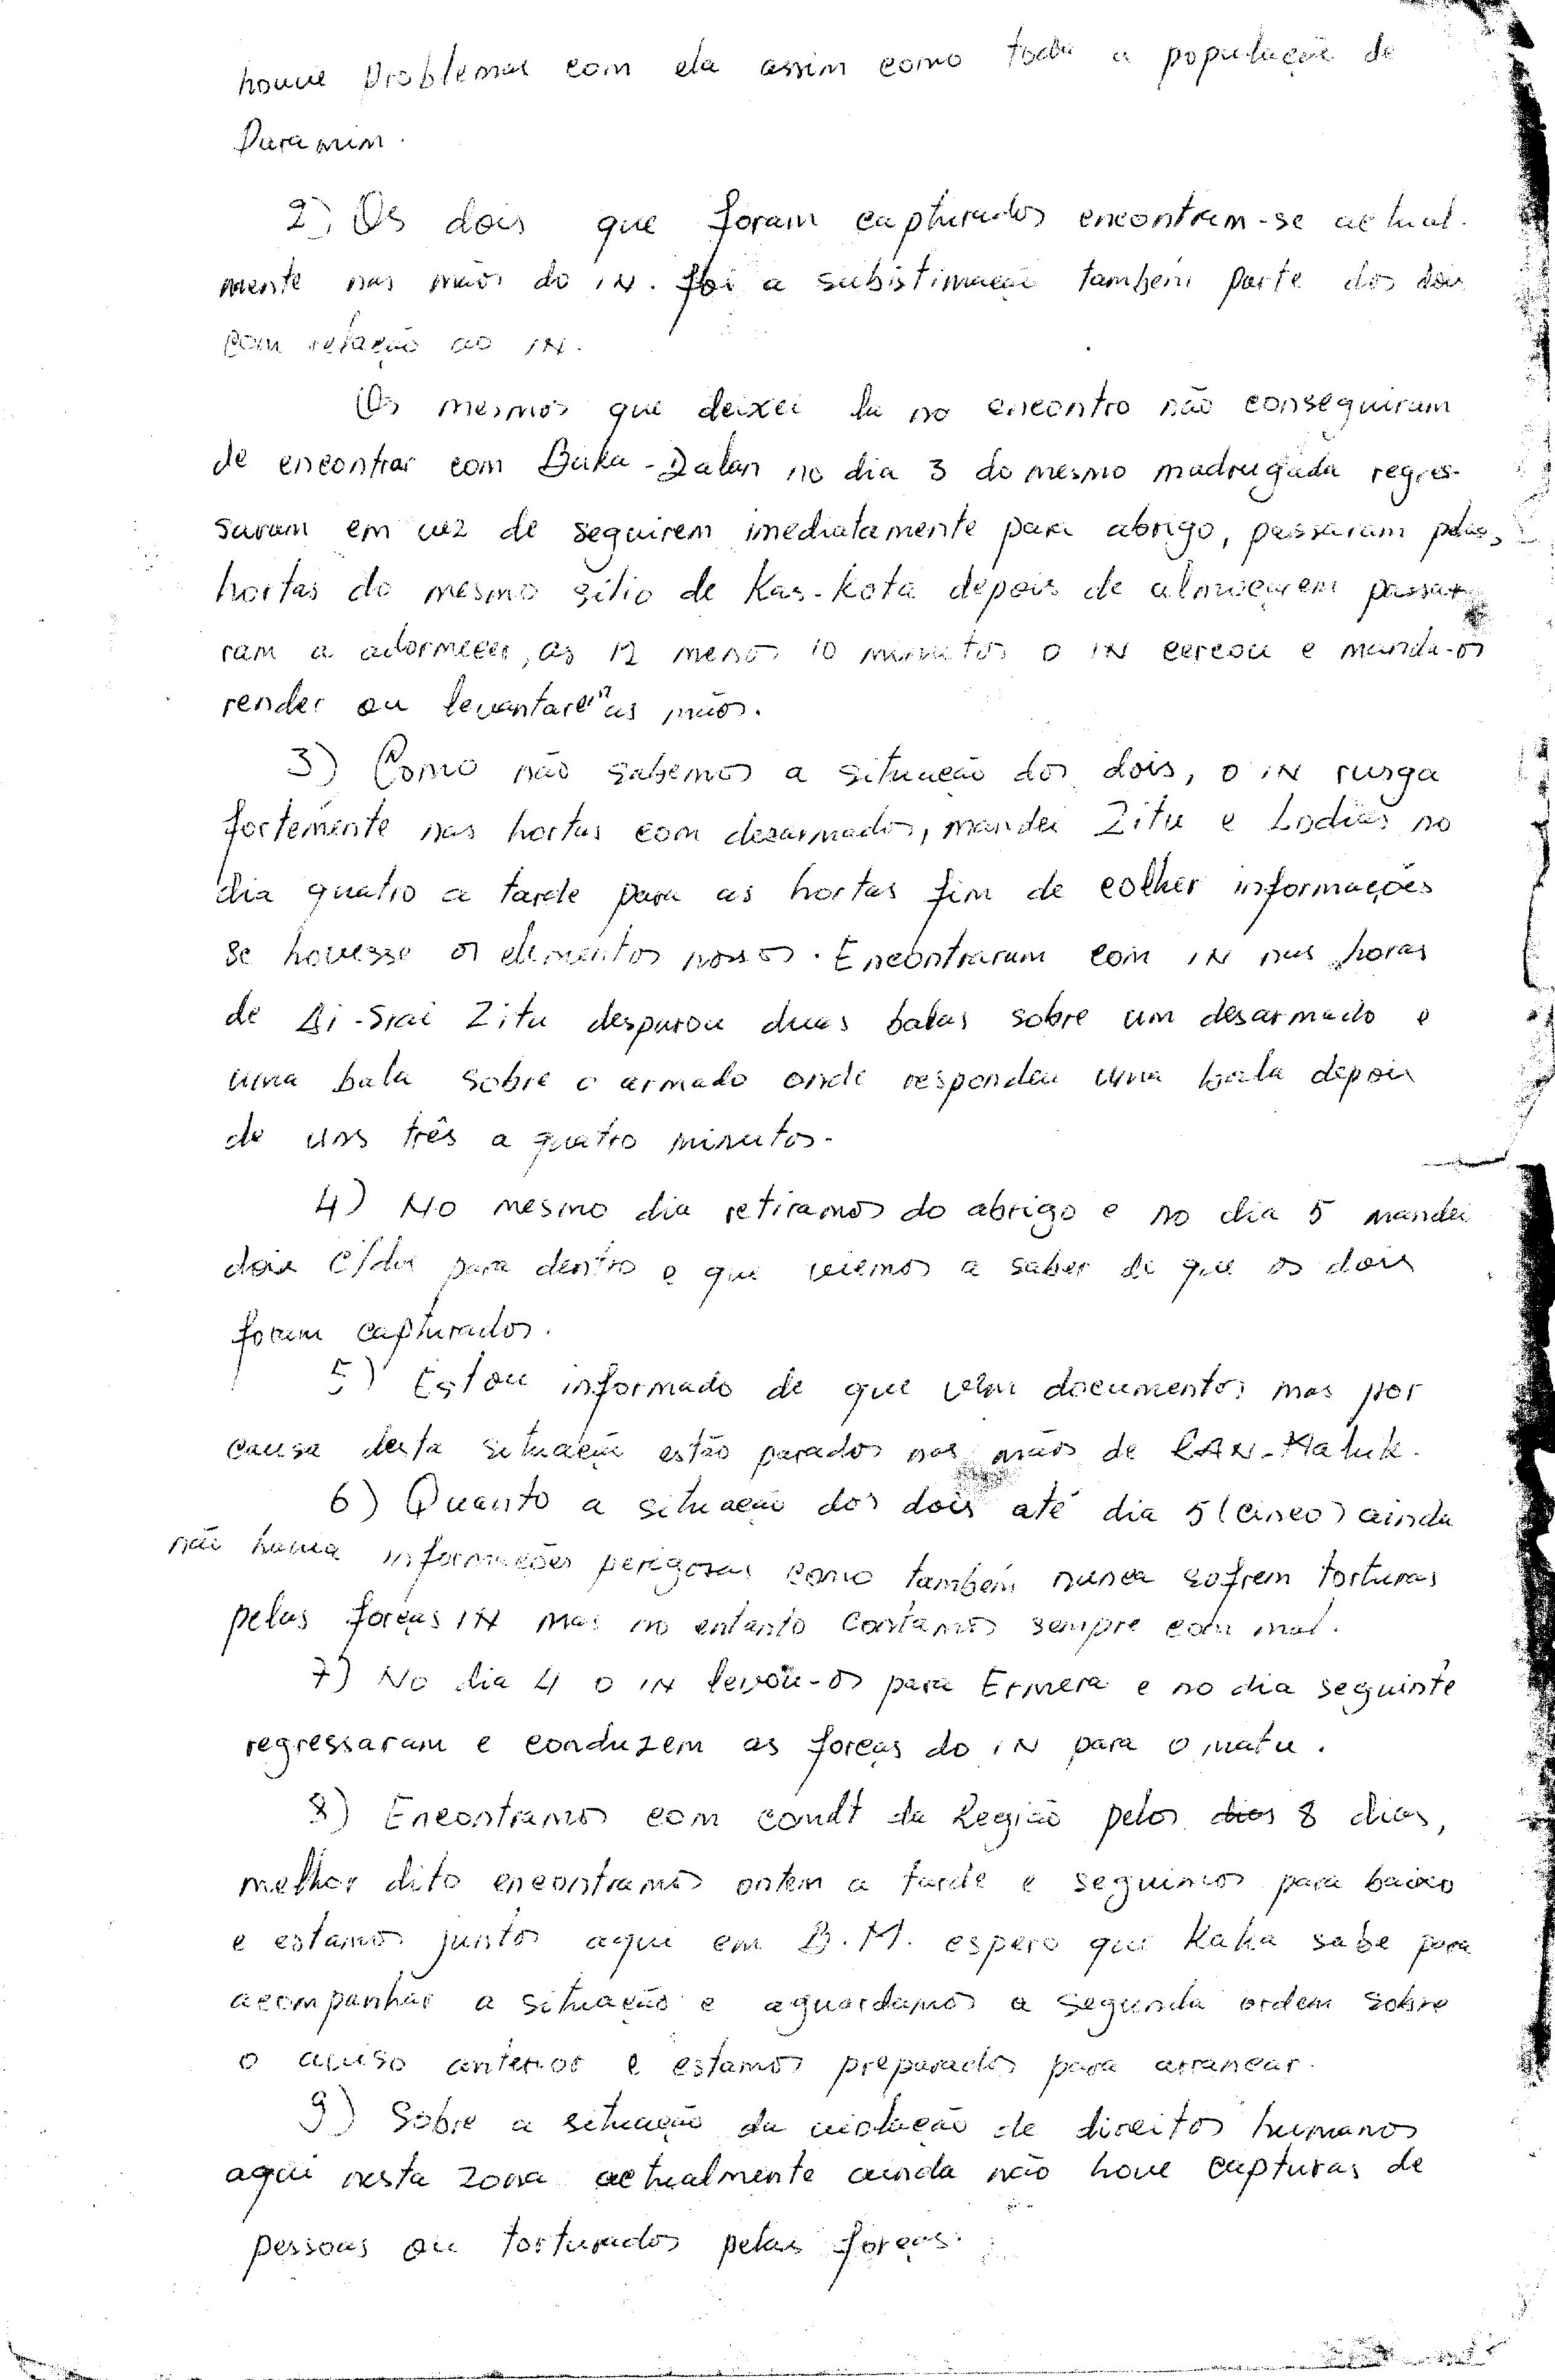 houve problemas com ela assim como toda a população de
Paramin.
2) Os dois que foram capturados encontram-se actual-
mente nas mãos do IN. foi a subistimação também parte dos dois
com relação ao IN.
Os mesmos que deixei la no encontro não conseguiram
de encontrar com Buka-Dalan no dia 3 do mesmo madrugada regres-
saram em vez de seguirem imediatamente para abrigo, passaram pelas
hortas do mesmo sitio de Kas-Kota depois de almoçarem passa-
ram a adormecer, as 12 menos 10 minutos o IN cercou e manda-os
render ou levantarem as mãos.
3) Como não sabemos a situação dos dois, o IN rusga
fortemente nas hortas com desarmados, mandei Zitu e Lodias no
dia quatro a tarde para as hortas fim de colher informações
se houvesse os elementos nossos. Encontraram com IN nas horas
de Ai-Srai Zitu desparou duas balas sobre um desarmado e
uma bala sobre o armado onde respondeu uma bala depois
de uns três a quatro minutos.
4) No mesmo dia retiramos do abrigo e no dia 5 mandei
dois c/da para dentro e que viemos a saber de que os dois
foram capturados.
5) Estou informado de que vem documentos mas por
causa desta situação estão parados nas mãos de LAN-Maluk.
6) Quanto a situação dos dois até dia 5 (cinco) ainda
não havia informações perigosas como também nunca sofrem torturas
pelas forças IN mas no entanto contamos sempre com mal.
7) No dia 4 o IN levou-os para Ermera e no dia seguinte
regressaram e conduzem as forças do IN para o matu.
8) Encontramos com condt da Região pelos dias 8 dias,
melhor dito encontramos ontem a tarde e seguimos para baixo
e estamos juntos aqui em B.M. espero que Kaka sabe para
acompanhar a situação e aguardamos a segunda ordem sobre
o aviso anterior e estamos preparados para arrancar.
9) Sobre a situação da violação de direitos humanos
aqui nesta zona actualmente ainda não houve capturas de
pessoas ou torturados pelas forças.